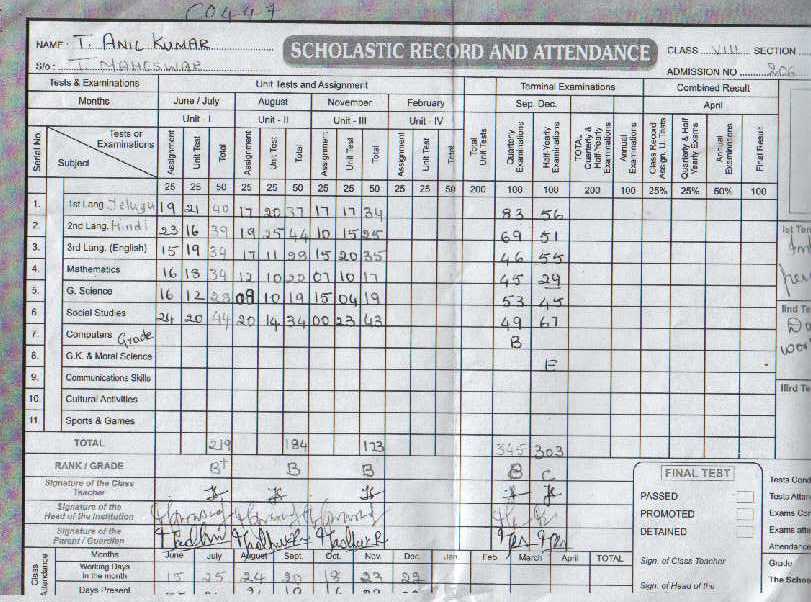 C0447
NAME : T. ANIL KUMAR
SCHOLASTIC RECORD AND ATTENDANCE
CLASS VIII SECTION
S/o : T. MAHESWAR
ADMISSION NO 206
Tests & Examinations Unit Tests and Assignment Terminal Examinations Combined Result
Months June / July August November February Sep. Dec. April
Unit - I Unit - II Unit - III Unit - IV
Serial No. Tests or Examinations Subject Assignment Unit Test Total Assignment Unit Test Total Assignment Unit Test Total Assignment Unit Test Total Total Unit Tests Quarterly Examinations Half-Yearly Examinations TOTAL Quarterly & Half-Yearly Examinations Annual Examinations Class Record Assign. U. Tests Quarterly & Half Yearly Exams Annual Examinations Final Result
25 25 50 25 25 50 25 25 50 25 25 50 200 100 100 200 100 25% 25% 50% 100
1. 1st Lang. Telugu 19 21 40 17 20 37 17 17 34 83 56
2. 2nd Lang. Hindi 23 16 39 19 25 44 10 15 25 69 51
3. 3rd Lang. (English) 15 19 34 17 11 28 15 20 35 46 55
4. Mathematics 16 18 34 12 10 22 07 10 17 45 29
5. G. Science 16 12 28 09 10 19 15 04 19 53 45
6. Social Studies 24 20 44 20 14 34 00 23 43 49 67
7. Computers Grade B
8. G.K. & Moral Science E
9. Communications Skills
10. Cultural Activities
11. Sports & Games
TOTAL 219 184 173 345 303
RANK / GRADE B+ B B B C
Signature of the Class Teacher
Signature of the Head of the Institution
Signature of the Parent / Guardian
FINAL TEST
PASSED
PROMOTED
DETAINED
Sign. of Class Teacher
Sign. of Head of the
Class Attendance Months June July August Sept. Oct. Nov. Dec. Jan. Feb. March April TOTAL
Working Days In the month 15 25 24 20 18 23 22
Days Present
Ist Ten
IInd Te
IIIrd Te
Tests Cond
Tests Atten
Exams Con
Exams atte
Attendance
Grade
The Schoo